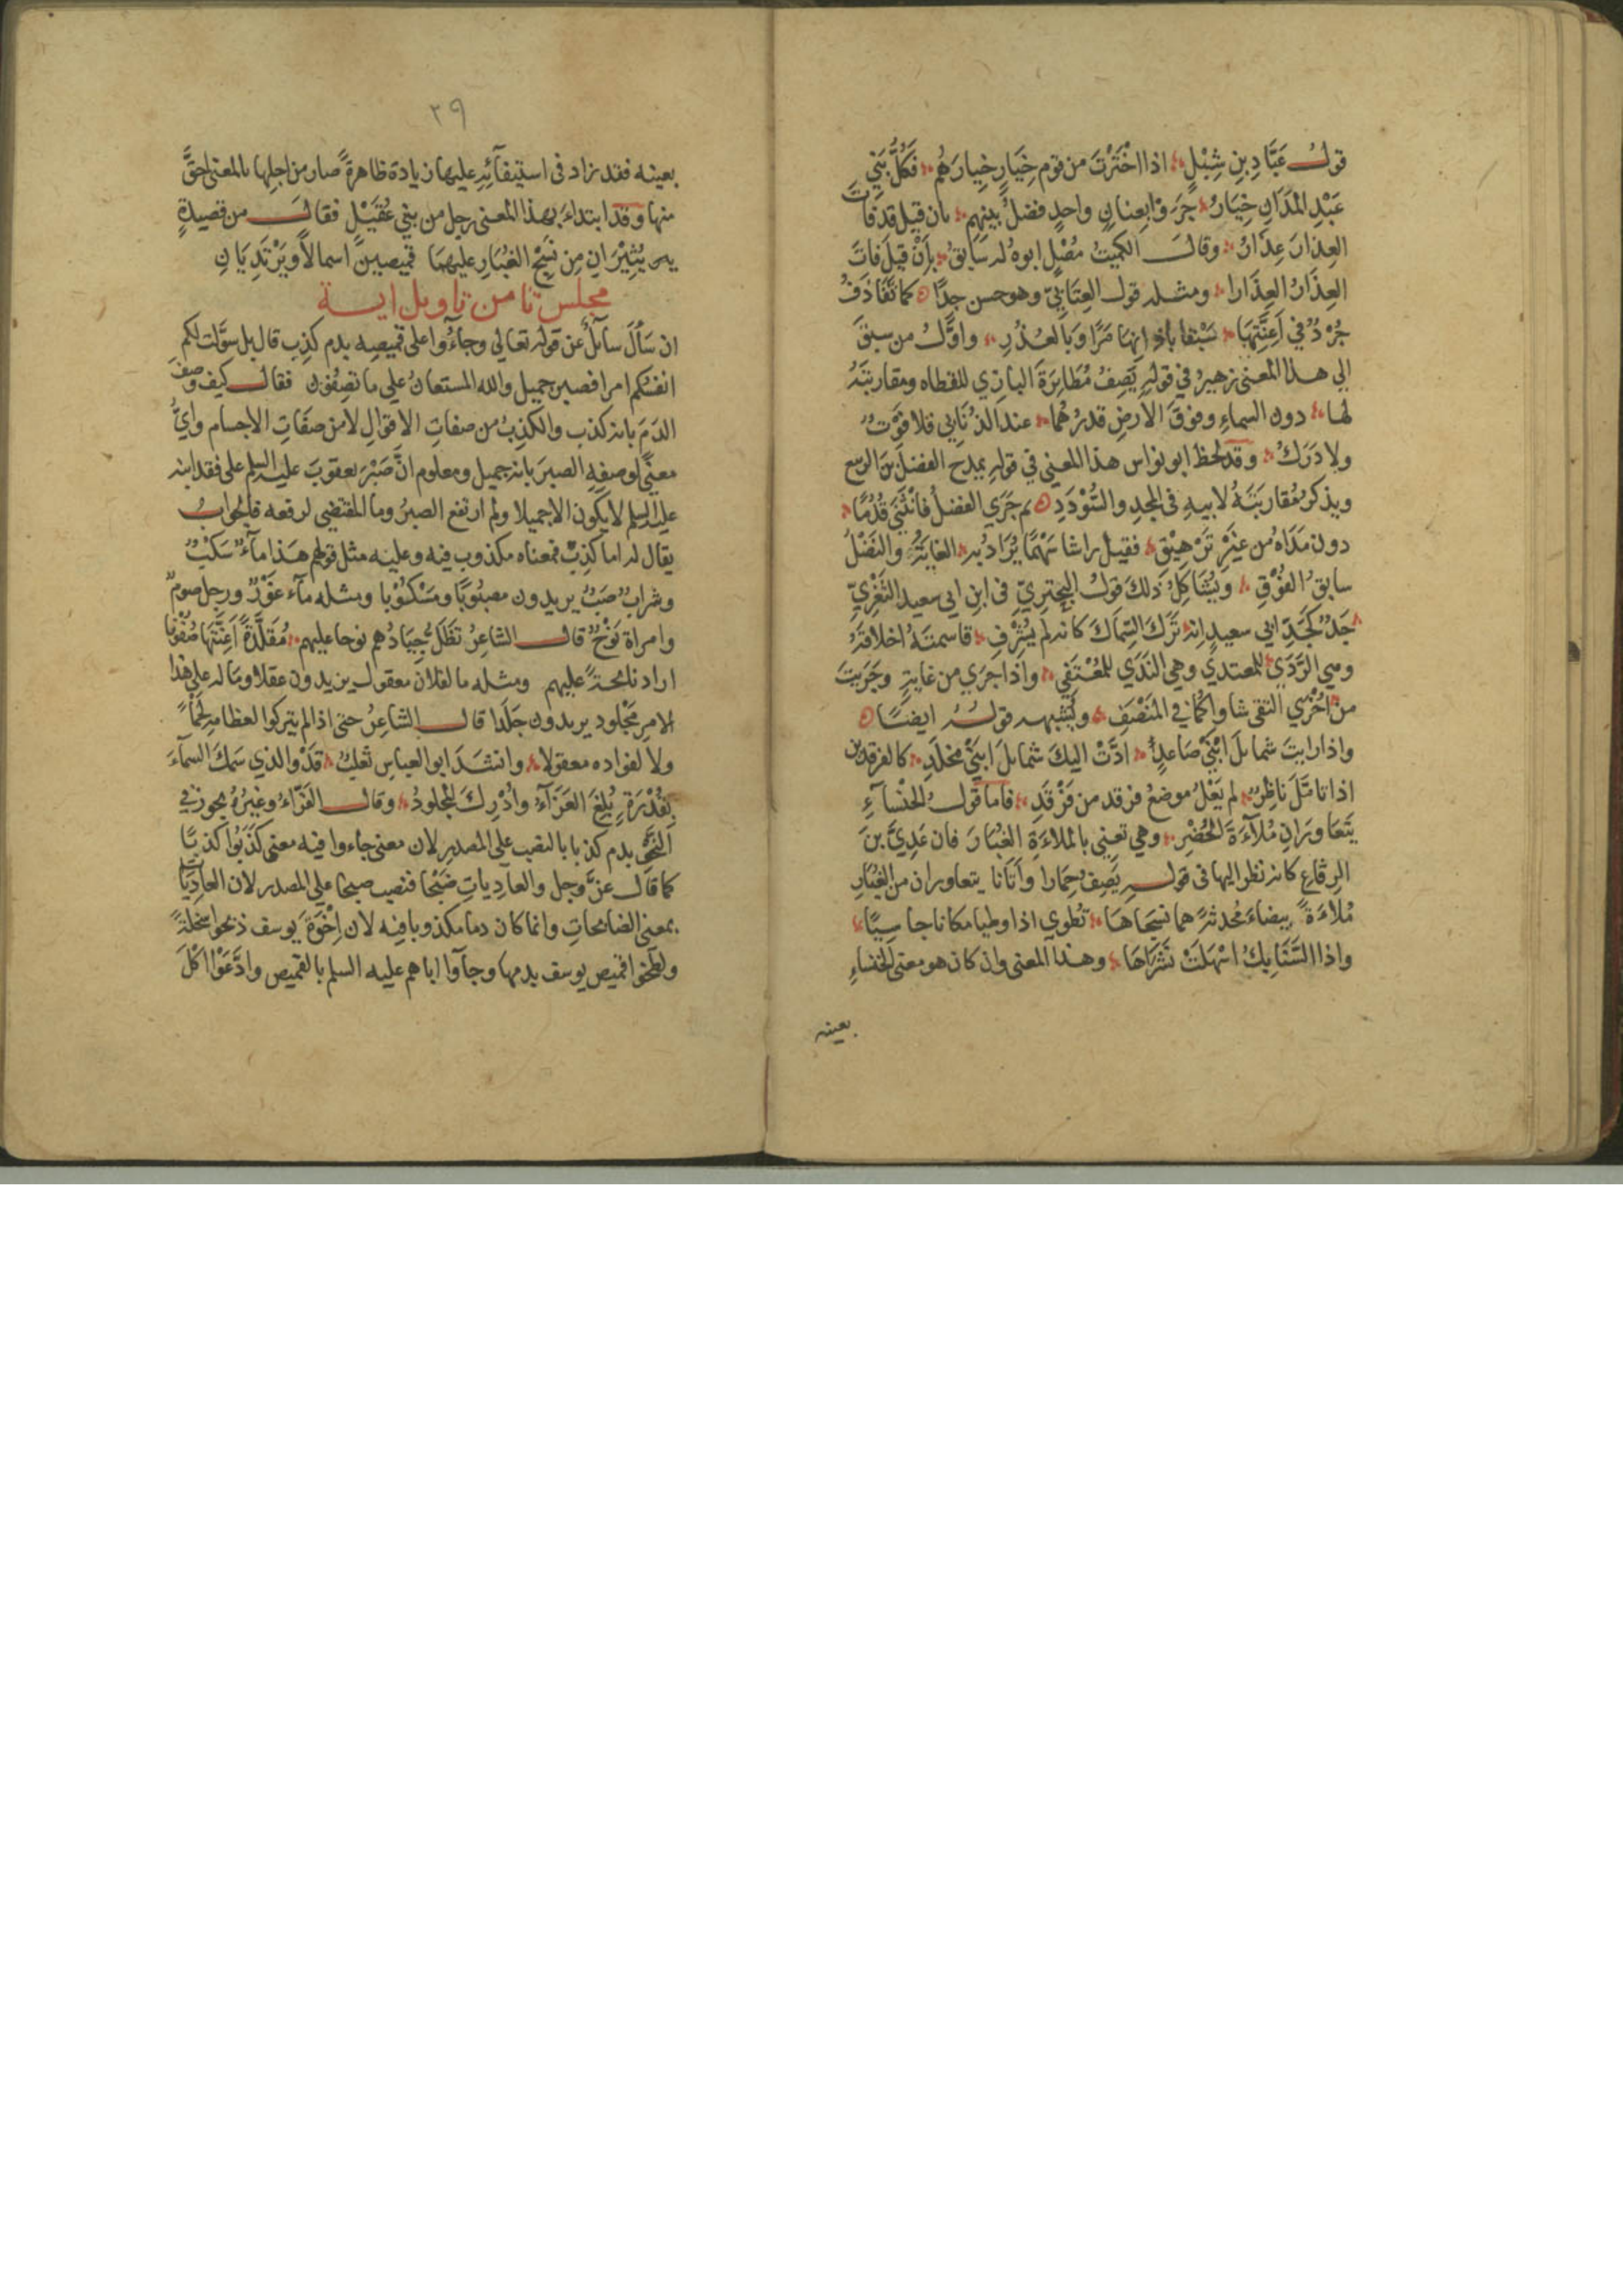 قول عَبَّادِ بنِ شِبْلٍ اذا اخْتَرْتَ من قوم خِيَارٍ خِيارَهُم فَكُلُّ بَنِي
عَبْدِ المَدَانِ خِيَارُ جَرَوْا بِعِنانٍ واحدٍ فضلُ بينهم بان قيل قد فاتَ
العِذارَ عِذَارُ وقال الكميتُ مُصْلٍ ابوه له سَابِقُ بِأَنْ قِيلَ فَاتَ
العِذَارُ العِذَارا ومثله قول العِتَابيّ وهو حسن جدًّا كما تَقَاذَفُ
جُرْدٌ في اَعِنَّتِهَا سَبْقًا بآذانها مَرًّا وَبالعُذُرِ واوَّلُ من سبقَ
الي هذا المعنى زهيرٌ في قولِهِ يَصِفُ مُطَايَرَةَ البازِي للقطاه ومقاربَتَهُ
لها دون السماءِ وفوقَ الارضِ قدرُهُما عند الذُّنَابي فلا فَوْتٌ
ولا دَرَكُ وقد لحظ ابو نواس هذا المعني في قولِهِ يمدح الفضلَ بنَ الربيع
ويذكر مُقاربَتَهُ لابيهِ في المجدِ والسُّوْدَدِ ثم جَرَي الفضلُ فانْثَنَي قُدُمًا
دون مَدَاهُ من غَيْرِ تَرْهِيْقِ فقيل راشا سَهْمًا يُرَادُ به الغايَةُ والنَّصْلُ
سابقُ الفُوْقِ ويُشَاكِلُ ذلكَ قولُ البُحْتِريِّ في ابنِ ابي سعيد الثَّغْرِيِّ
جَدٌّ كَجَدِّ ابي سعيدٍ انه تَرَكَ السِّمَاكَ كانه لم يُشْرِفِ قاسمتَهُ اخلاقَهُ
وهي الرَّدَي للمعتدي وهي النَّدَي للمُعْتَفِي واذا جَرَي من غايةٍ وجَرَيتَ
من اُخْرَي التقى شاواكما في المَنْصَفِ ويُشبهه قولُهُ ايضًا
واذا رايتَ شمايلَ ابْنَيْ صَاعدٍ ادَّتْ اليكَ شمايلَ ابنَيْ مخلَدِ كالفرقدين
اذا تامَّلَ ناظِرٌ لم يَعْلُ موضعُ فرقد من فَرْقَدِ فاما قولُ الخنْسآءِ
يَتَعَاوَرَانِ مُلآءَةَ الحُضْرِ وهي تعني بالملاءَةِ الغُبَارَ فان عَدِيَّ بنَ
الرِقَاعِ كانه نظر اليها في قولِهِ يَصِفُ حِمَارا وأتانا يتعاوران من الغُبَارِ
مُلاءَةً بيضاءَ مُحدثةً هما نسجَاهَا تُطوي اذا وطيا مكانا جاسِيًا
واذا السَّنَابِكُ اسْهَلَتْ نَشَرَاهَا وهذا المعنى وان كان هو معنى الخنساءِ
بعينه
٢٩
بعينه فقد زاد في استيفآئِهِ عليها زيادة ظاهرةً صار من اجلها بالمعنى احقَّ
منها وقد ابتداءَ بهذا المعنى رجل من بني عُقَيْلٍ فقالَ من قصيدةٍ
يُثِيْرَانِ مِن نَسْجِ الغُبَارِ عليهمَا قميصينِ اسمالاً ويَرْتَدِيَانِ
مجلس ثامن تاويل اية
ان سَأَلَ سآئلٌ عن قوله تعالي وجآءُوا على قميصِه بدم كذِب قال بل سوَّلت لكم
انفسكم امرا فصبر جميل والله المستعانُ علي ما تصِفُون فقال كيف وصفَ
الدَمَ بانه كذب والكذِبُ من صفاتِ الاقوالِ لا من صفَاتِ الاجسام وايُّ
معنًى لوصفِهِ الصبرَ بانه جميل ومعلوم انَّ صَبْرَ يعقوبَ عليه السلم على فقد ابنه
عليه السلم لا يكون الا جميلا ولم ارتفع الصبرُ وما المقتضي لرفعه فالجوابُ
يقال له اما كذِبٌ فمعناه مكذوب فيه وعليه مثل قولهم هذا مآءٌ سَكْبٌ
وشرابٌ صَبٌّ يريدون مصبُوبًا ومَسْكُوْبا ومثله مآء غَوْرٌ ورجل صومٌ
وامراة نَوْحٌ قال الشاعِرُ تَظَلُّ جِيَادُهم نوحا عليهم مُقَلَّدَةً اَعِنَّتَهَا صُفُونا
اراد نائحةً عليهم ومثله ما لفلان معقول يريدون عقلا وما له علي هذا
الامرِ مَجْلود يريدون جَلَدا قال الشاعِرُ حتى اذا لم يتركوا لعظامِهِ لحمًا
ولا لفواده معقولا وانشدَ ابو العباس ثعلبٌ قَدْ والذي سَمَكَ السمآءَ
بِقُدْرَةٍ بُلِغَ العَزَآءُ وأُدْرِكَ المجلودُ وقال الفَرَّاءُ وغيرُهُ يجوز في
النحو بدم كذبا بالنصب علي المصدرِ لان معنى جاءوا فيه معنى كَذَبُوا كذبًا
كما قال عزَّ وجل والعادِياتِ ضَبْحًا فنصب ضبحا علي المصدر لان العادِيَات
بمعنى الضابحاتِ وانما كان دما مكذوبا فيه لان اِخْوَةَ يوسف ذبحوا سخلةً
ولطخوا قميص يوسف بدمها وجآوا اباهم عليه السلم بالقميص وادَّعَوْا اكْلَ